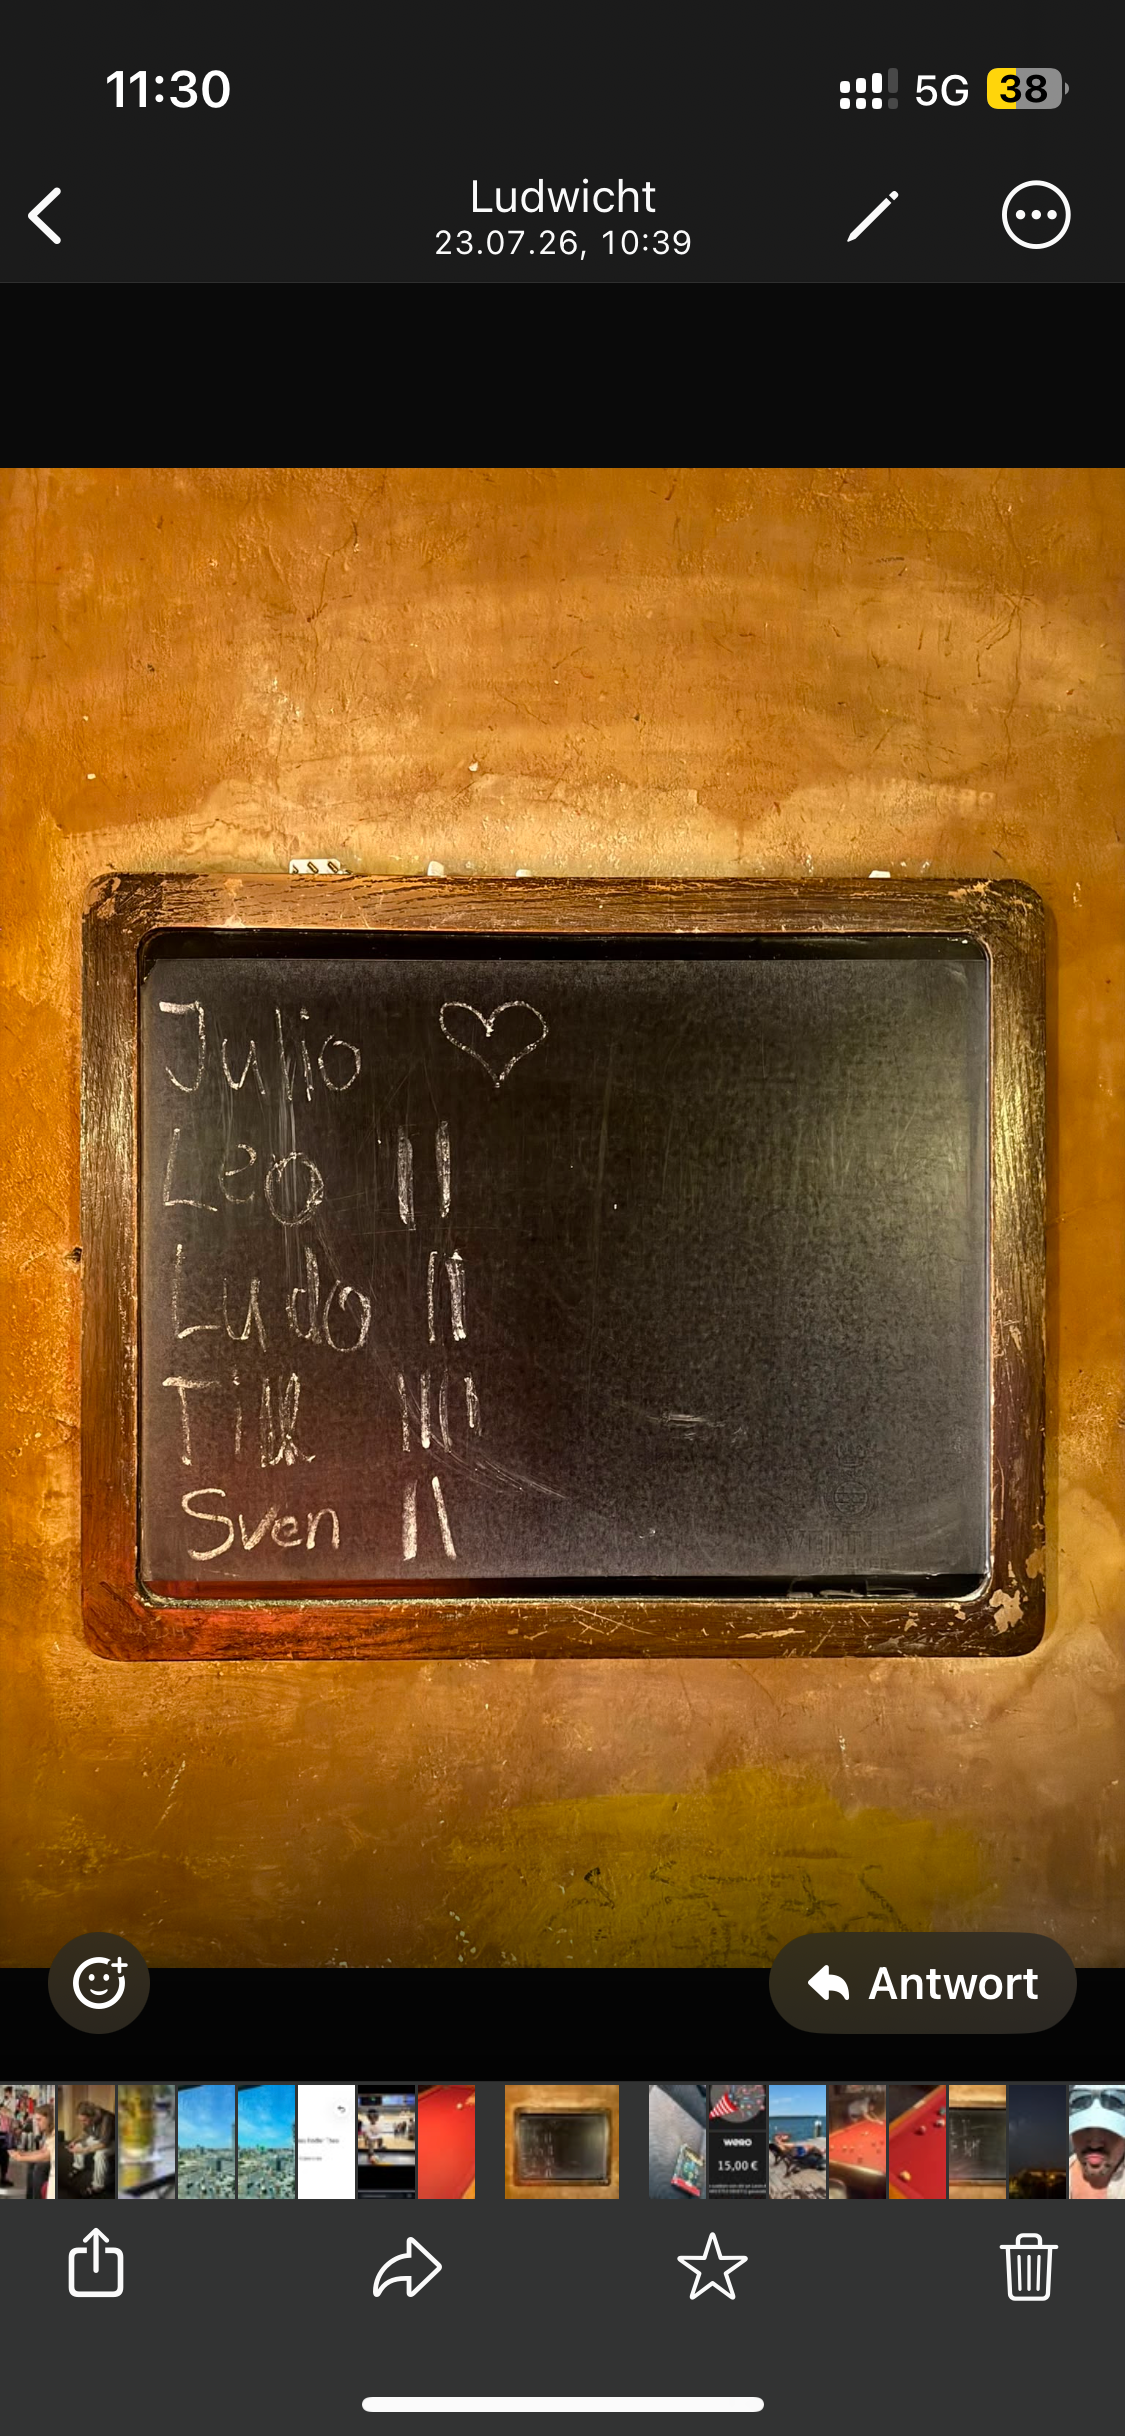 11:30
5G 38
Ludwicht
23.07.26, 10:39
Julio ♡
Leo II
Ludo II
Till IIII
Sven II
PILSENER
Antwort
wero
15,00 €